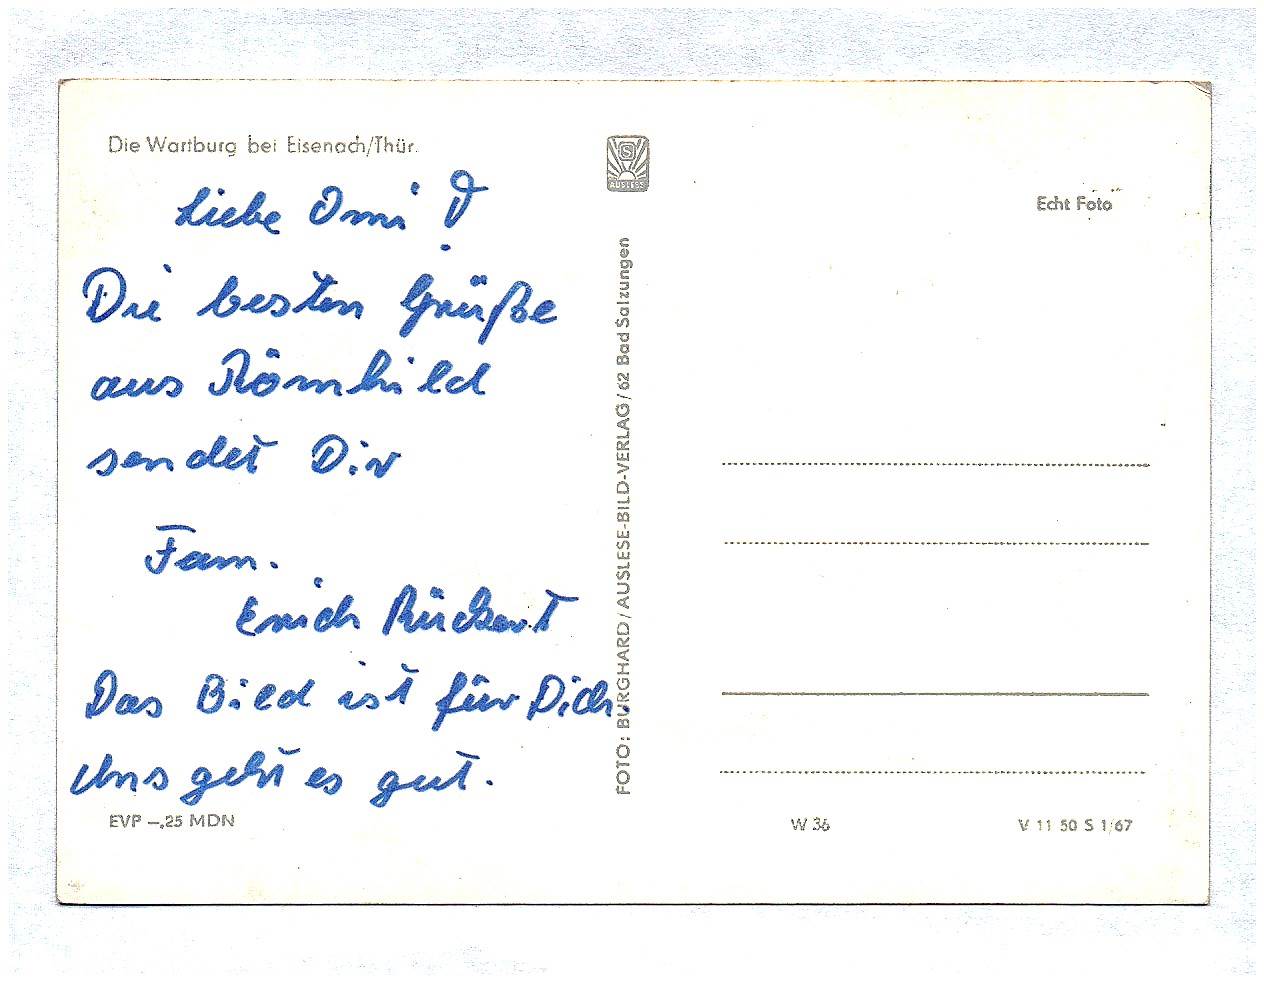 Die Wartburg bei Eisenach/Thür.
Liebe Omi!
Die besten Grüße
aus Römhild
sendet Dir
Fam.
Erich Rückert
Das Bild ist für Dich.
Uns geht es gut.
EVP –,25 MDN
S
AUSLESE
FOTO: BURGHARD/AUSLESE-BILD-VERLAG/62 Bad Salzungen
Echt Foto
W 36
V 11 50 S 1/67